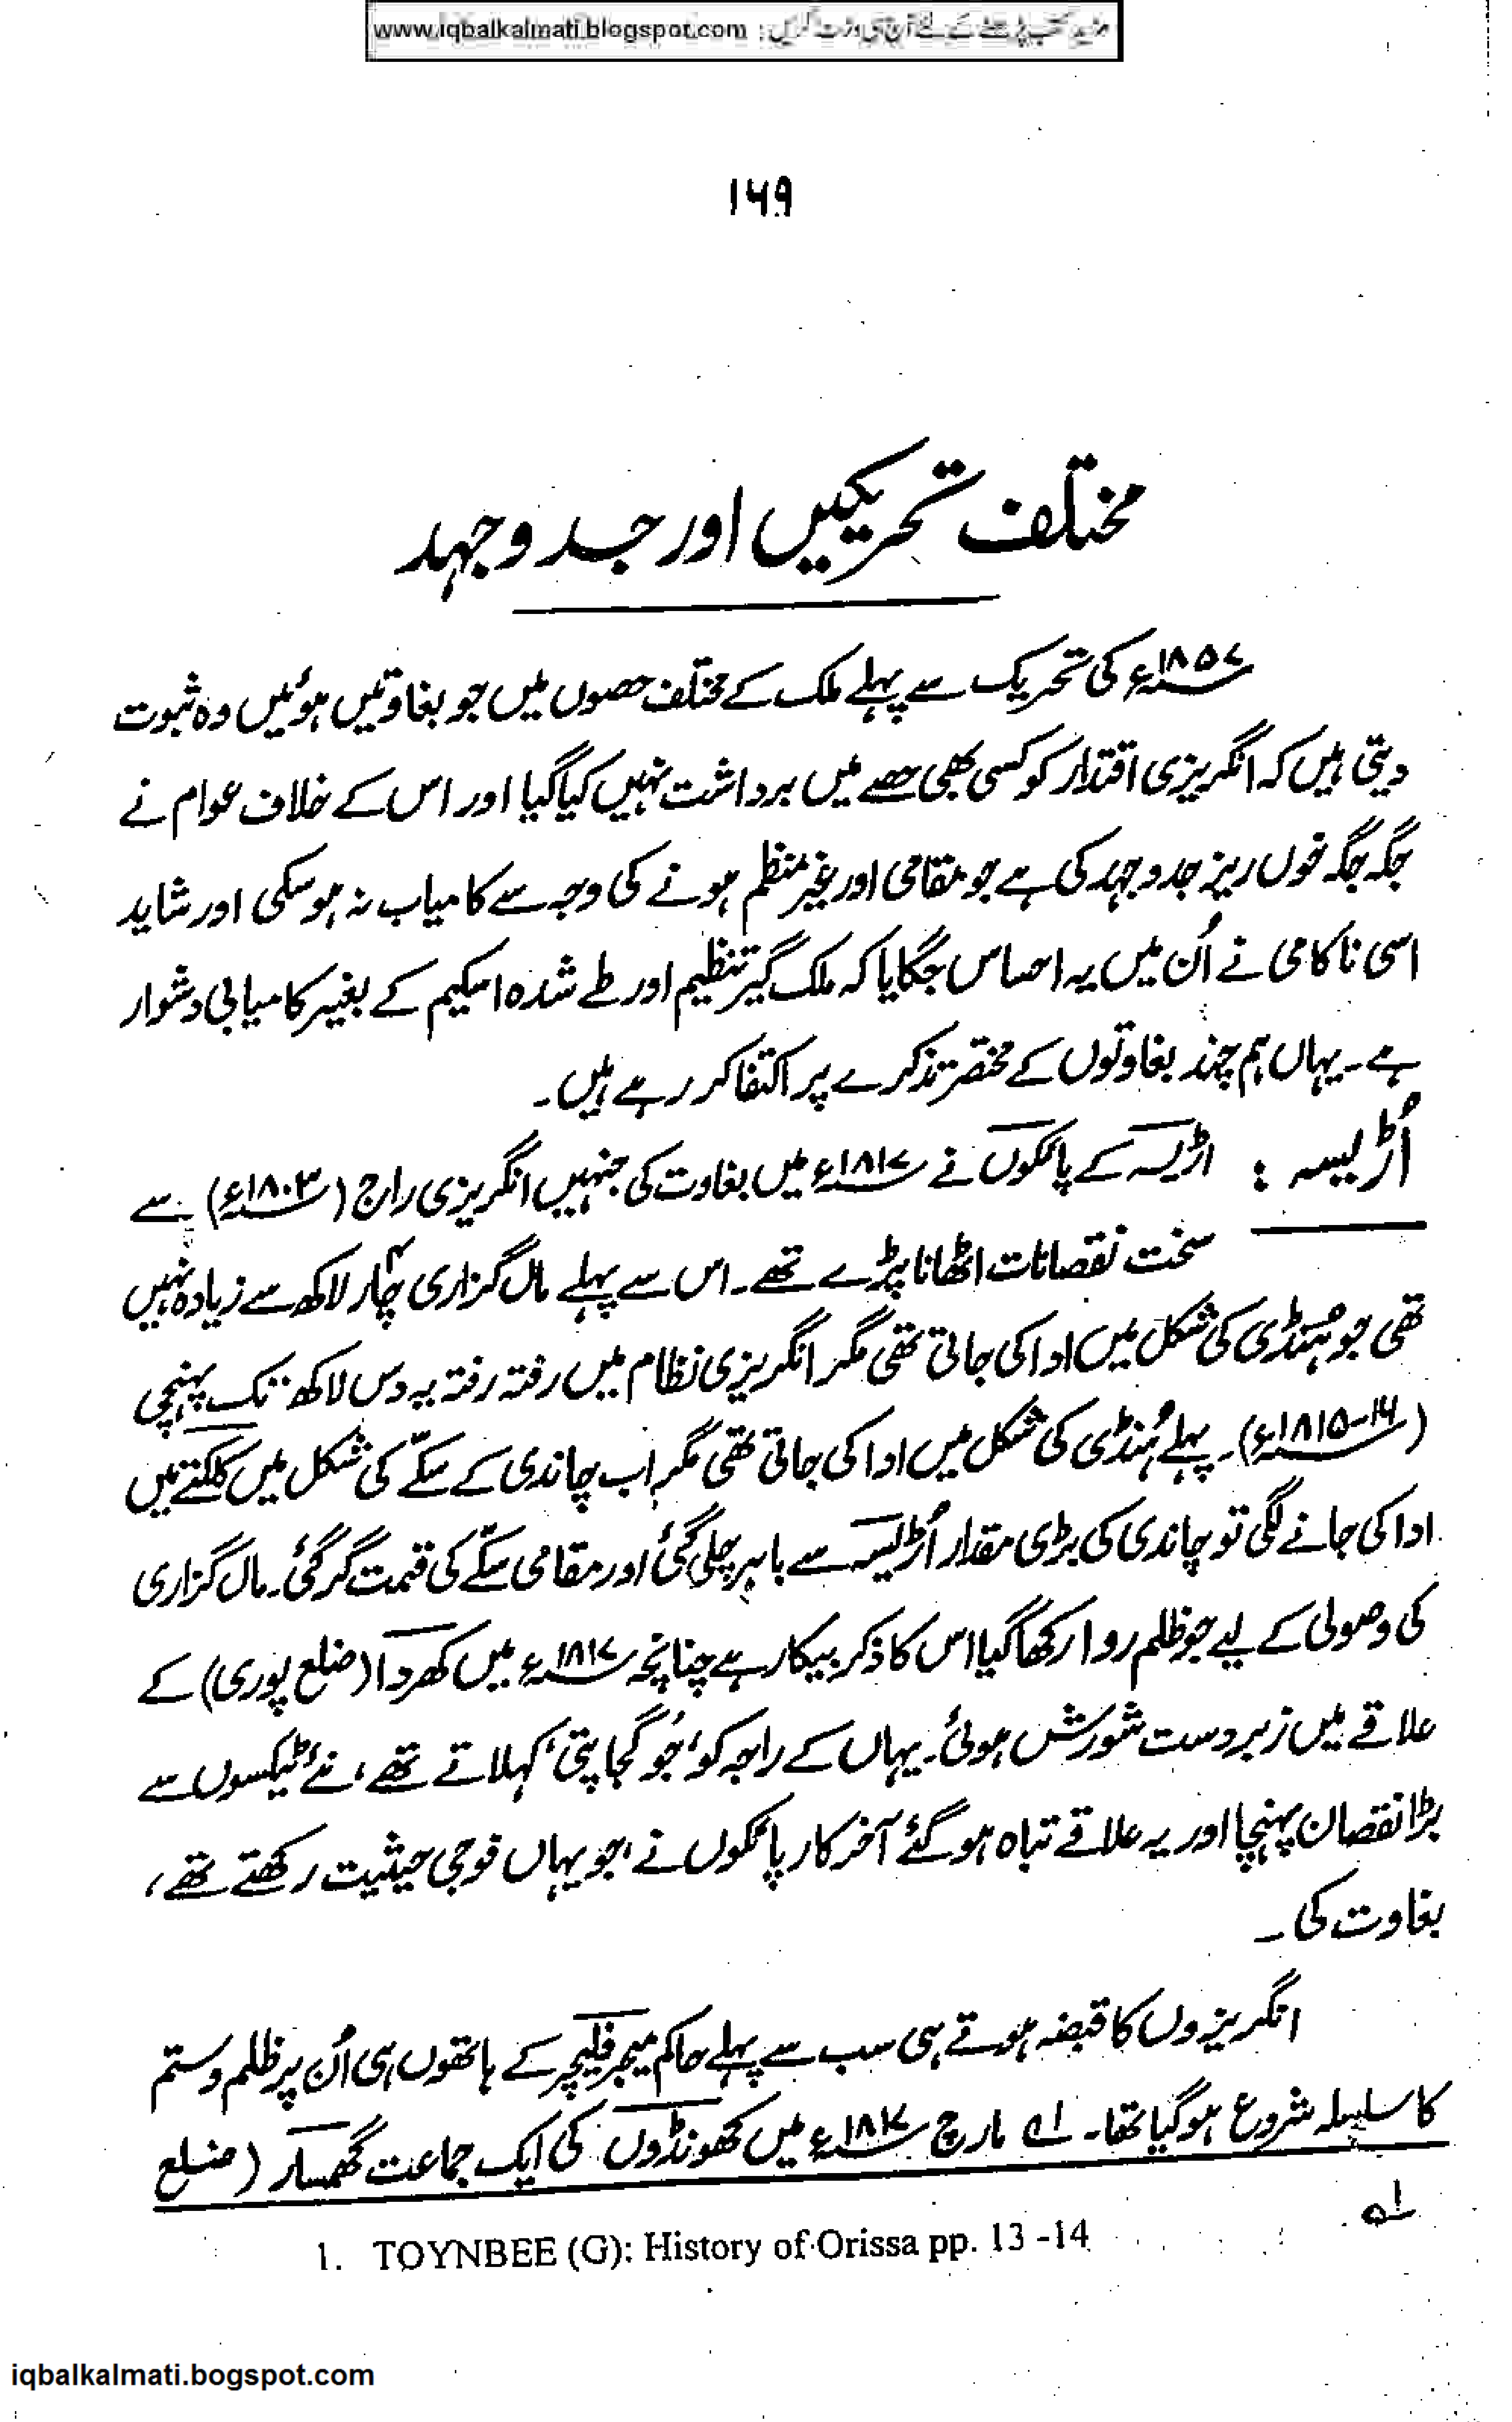 www.iqbalkalmati.blogspot.com : مزید کتب پڑھنے کے لئے آج ہی وزٹ کریں
۱۶۹
مختلف تحریکیں اور جدوجہد
۱۸۵۷ء کی تحریک سے پہلے ملک کے مختلف حصوں میں جو بغاوتیں ہوئیں وہ ثبوت
دیتی ہیں کہ انگریزی اقتدار کو کسی بھی حصے میں برداشت نہیں کیا گیا اور اس کے خلاف عوام نے
جگہ جگہ خوں ریز جدوجہد کی ہے جو مقامی اور غیر منظم ہونے کی وجہ سے کامیاب نہ ہوسکی اور شاید
اسی ناکامی نے اُن میں یہ احساس جگایا کہ ملک گیر تنظیم اور طے شدہ اسکیم کے بغیر کامیابی دشوار
ہے۔ یہاں ہم چند بغاوتوں کے مختصر تذکرے پر اکتفا کر رہے ہیں۔
اُڑیسہ : اڑیسہ کے پائکوں نے ۱۸۱۷ء میں بغاوت کی جنہیں انگریزی راج (۱۸۰۳ء) سے
سخت نقصانات اٹھانا پڑے تھے۔ اس سے پہلے مال گزاری چار لاکھ سے زیادہ نہیں
تھی جو ہُنڈی کی شکل میں ادا کی جاتی تھی مگر انگریزی نظام میں رفتہ رفتہ یہ دس لاکھ تک پہنچی
(۱۶-۱۸۱۵ء)۔ پہلے ہُنڈی کی شکل میں ادا کی جاتی تھی مگر اب چاندی کے سکّے کی شکل میں کلکتے میں
ادا کی جانے لگی تو چاندی کی بڑی مقدار اُڑیسہ سے باہر چلی گئی اور مقامی سکّے کی قیمت گر گئی۔ مال گزاری
کی وصولی کے لیے جو ظلم روا رکھا گیا اس کا ذکر بیکار ہے چنانچہ ۱۸۱۷ء میں کھردا (ضلع پوری) کے
علاقے میں زبردست شورش ہوئی۔ یہاں کے راجہ کو، جو گجاپتی، کہلاتے تھے، نئے ٹیکسوں سے
بڑا نقصان پہنچا اور یہ علاقے تباہ ہو گئے آخر کار پائکوں نے، جو یہاں فوجی حیثیت رکھتے تھے،
بغاوت کی۔
انگریزوں کا قبضہ ہوتے ہی سب سے پہلے حاکم میجر فلیچر کے ہاتھوں ہی اُن پر ظلم و ستم
کا سلسلہ شروع ہو گیا تھا۔ ۱ھ مارچ ۱۸۱۷ء میں کھونڈوں کی ایک جماعت گھمسار (ضلع
۱ھ
1. TOYNBEE (G): History of Orissa pp. 13 -14
iqbalkalmati.bogspot.com